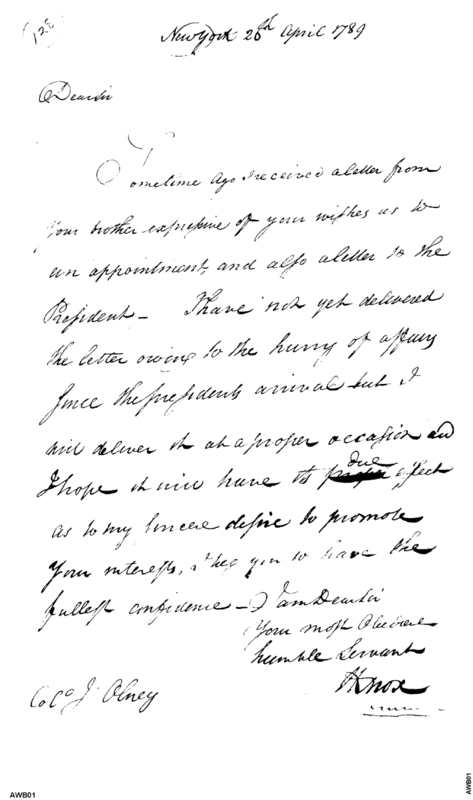 128
New York 26th April 1789
Dear sir
Sometime ago I received a letter from
your brother expressive of your wishes as to
an appointment, and also a letter to the
President — I have not yet delivered
the letter owing to the hurry of affairs
since the presidents arrival but I
will deliver it at a proper occasion and
I hope it will have its due effect
as to my sincere desire to promote
your interests, I beg you to have the
fullest confidence — I am Dear sir
Your most Obedient
humble Servant
HKnox
Colo J Olney
AWB01
AWB01